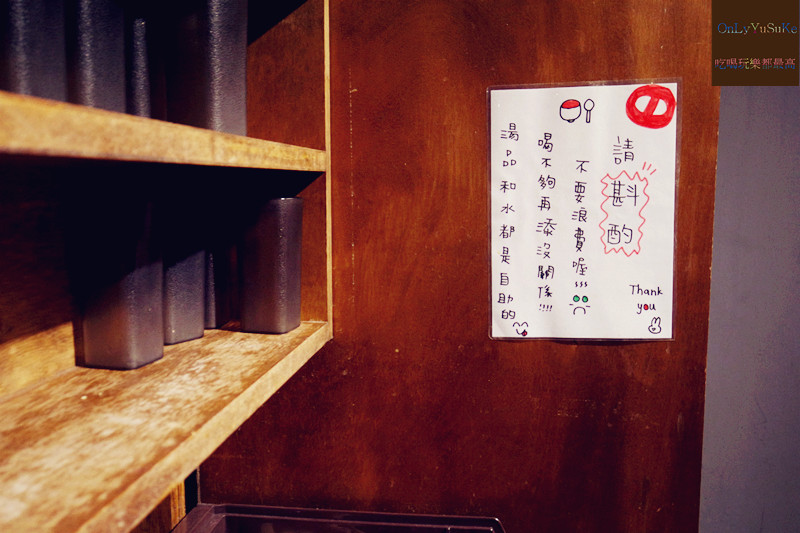 OnLyYuSuKe
吃喝玩樂都最高
請斟酌
不要浪費喔
喝不夠再添沒關係!!!!
湯品和水都是自助的
Thank
you